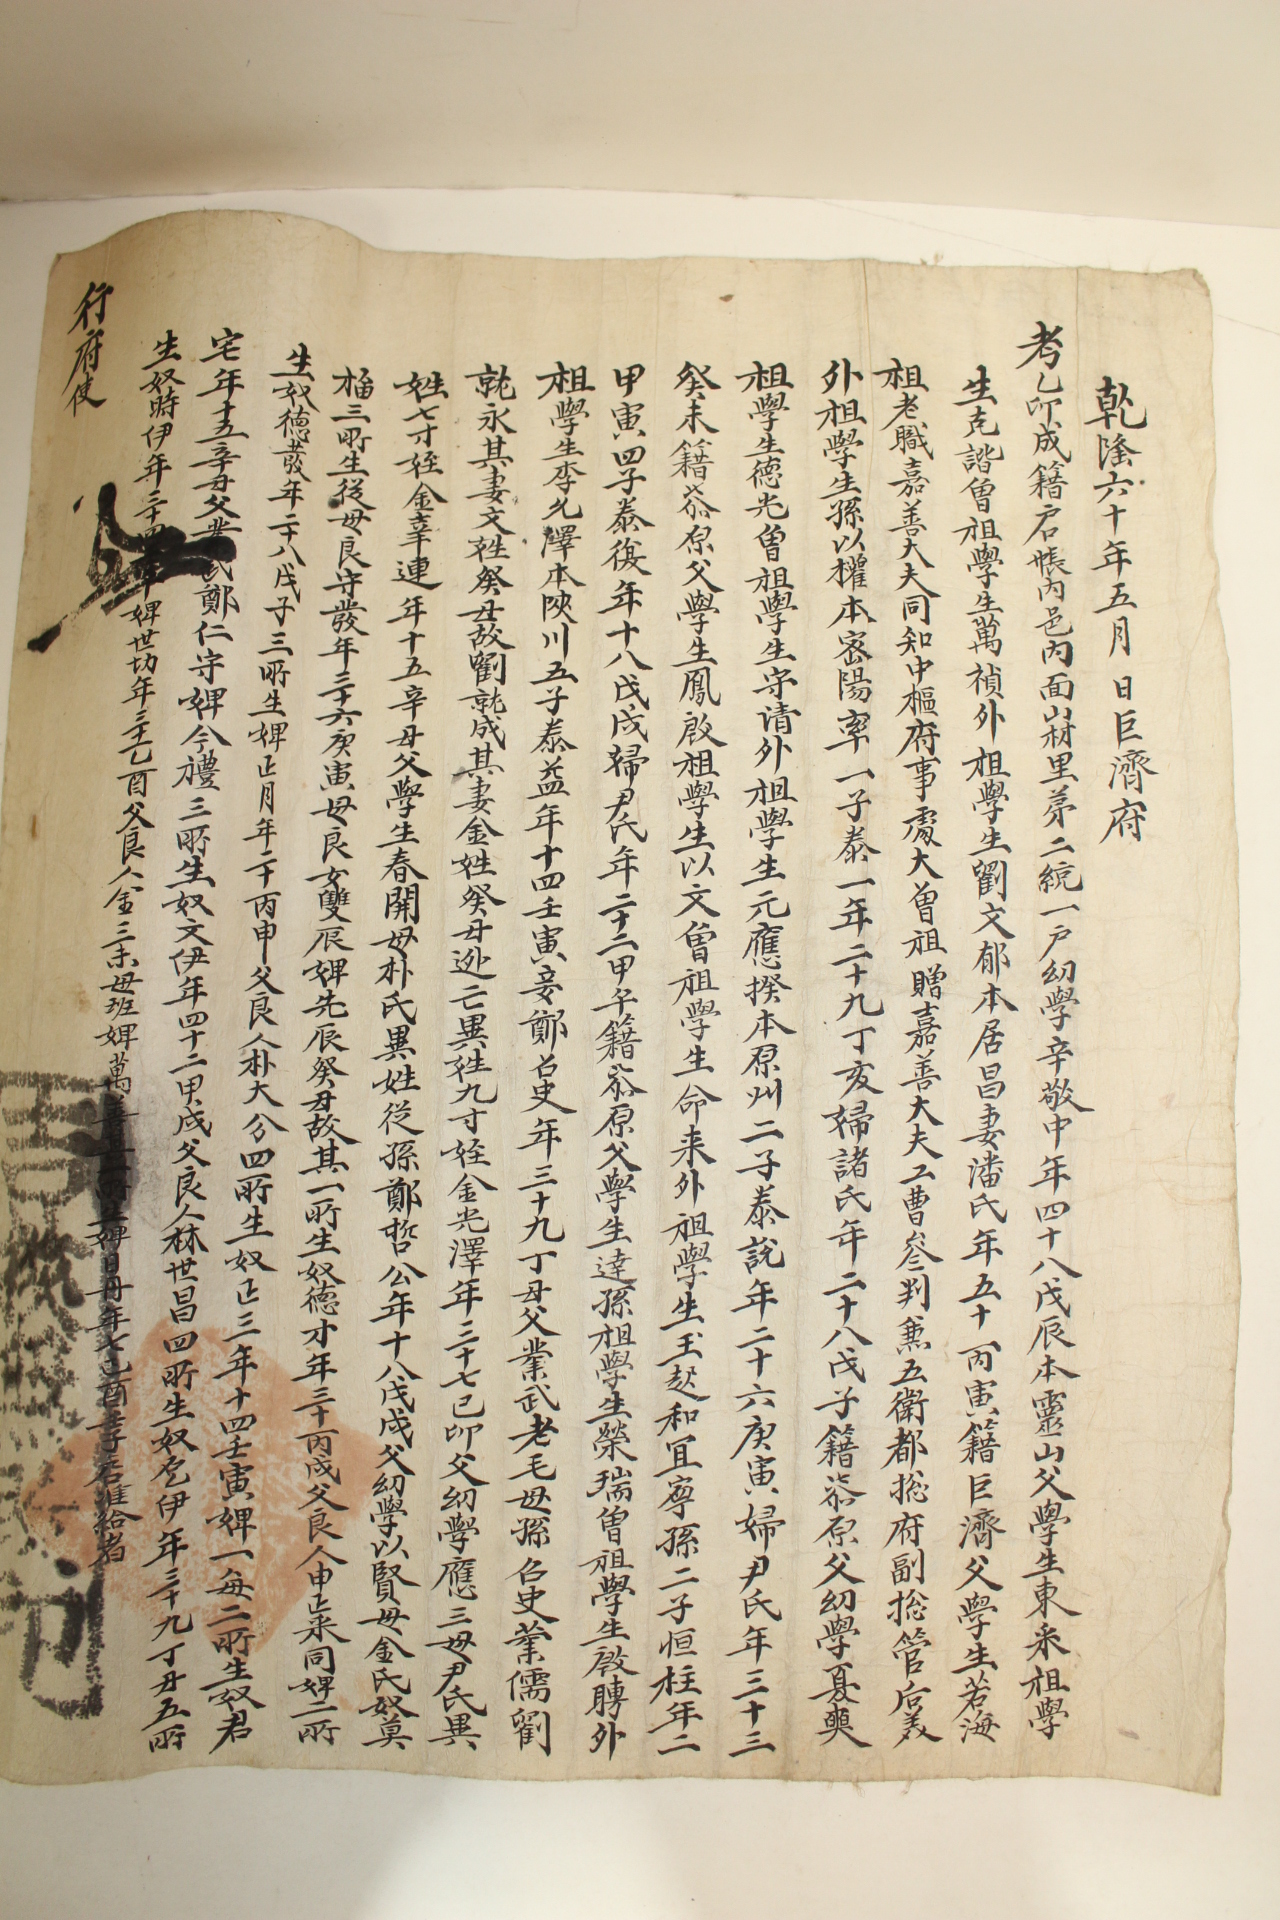 乾隆六十年五月 日巨濟府
考乙卯成籍戶帳內邑內面山村里第二統一戶幼學辛敬中年四十八戊辰本靈山父學生東釆祖學
生克諧曾祖學生萬禎外祖學生劉文郁本居昌妻潘氏年五十丙寅籍巨濟父學生若海
祖老職嘉善大夫同知中樞府事處大曾祖贈嘉善大夫工曹叅判兼五衛都摠府副摠管后義
外祖學生孫以權本密陽率一子泰一年二十九丁亥婦諸氏年二十八戊子籍漆原父幼學夏奭
祖學生德光曾祖學生守清外祖學生元應揆本原州二子泰說年二十六庚寅婦尹氏年三十三
癸未籍漆原父學生鳳啟祖學生以文曾祖學生命来外祖學生玉起和宜寧孫二子恒柱年二
甲寅四子泰復年十八戊戌婦尹氏年二十二甲午籍漆原父學生達孫祖學生榮瑞曾祖學生啟聘外
祖學生李允澤本陜川五子泰益年十四壬寅妾鄭召史年三十九丁丑父業武老毛母孫召史業儒劉
就永其妻文姓癸丑故劉就成其妻金姓癸丑逃亡異姓九寸姪金光澤年三十七己卯父幼學應三母尹氏異
姓七寸姪金幸連年十五辛丑父學生春開母朴氏異姓從孫鄭哲公年十八戊戌父幼學以賢母金氏奴莫
福三所生從母良守發年三十六庚寅母良女雙辰婢先辰癸丑故其一所生奴德才年三十丙戌父良人申正采同婢二所
生奴德發年二十八戊子三所生婢正月年二十丙申父良人朴大分四所生奴正三年十四壬寅婢一每二所生奴君
宅年十五辛丑父業武鄭仁守婢今禮三所生奴文伊年四十二甲戌父良人林世昌四所生奴允伊年三十九丁丑五所
生奴時伊年三十四壬午婢世切年三十一乙酉父良人金三未母班婢萬善一所生婢日丹年七己酉壬子戶准給者
行府使